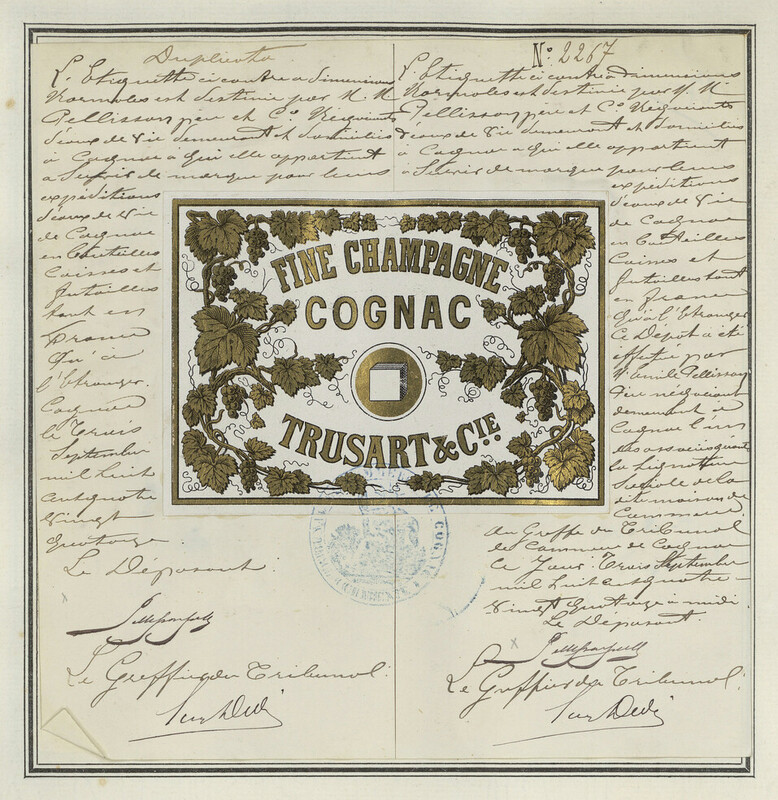 Duplicata
L'Etiquette ci contre a dimensions
Normales est destinée par M. M.
Pellisson père et Co. Négociants
d'eaux de Vie demeurant et domiciliés
à Cognac à qui elle appartient
a Servir de marque pour leurs
expéditions
d'eaux de Vie
de Cognac
en bouteilles
Caisses et
futailles
tant en
France
qu'à
l'étranger.
Cognac
le Trois
Septembre
mil huit
cent quatre
Vingt
quatorze
Le Déposant:
Le Greffier du Tribunal:
No. 2267
L'Etiquette ci contre à dimensions
Normales est destinée par M. M.
Pellisson père et Co. Négociants
d'eaux de Vie demeurant et domiciliés
à Cognac à qui elle appartient
à Servir de marque pour leurs
expéditions
d'eaux de Vie
de Cognac
en bouteilles
Caisses et
futailles tant
en France
qu'à l'étranger
Ce Dépôt a été
effectué par
Pellisson
père négociant
demeurant à
Cognac l'un
des associés ayant
la Signature
Sociale de la
dite maison de
Commerce.
Au Greffe du Tribunal
de Commerce de Cognac
le Jour Trois Septembre
mil huit cent quatre-
Vingt quatorze à midi.
Le Déposant.
Le Greffier du Tribunal:
FINE CHAMPAGNE
COGNAC
TRUSART & CIE